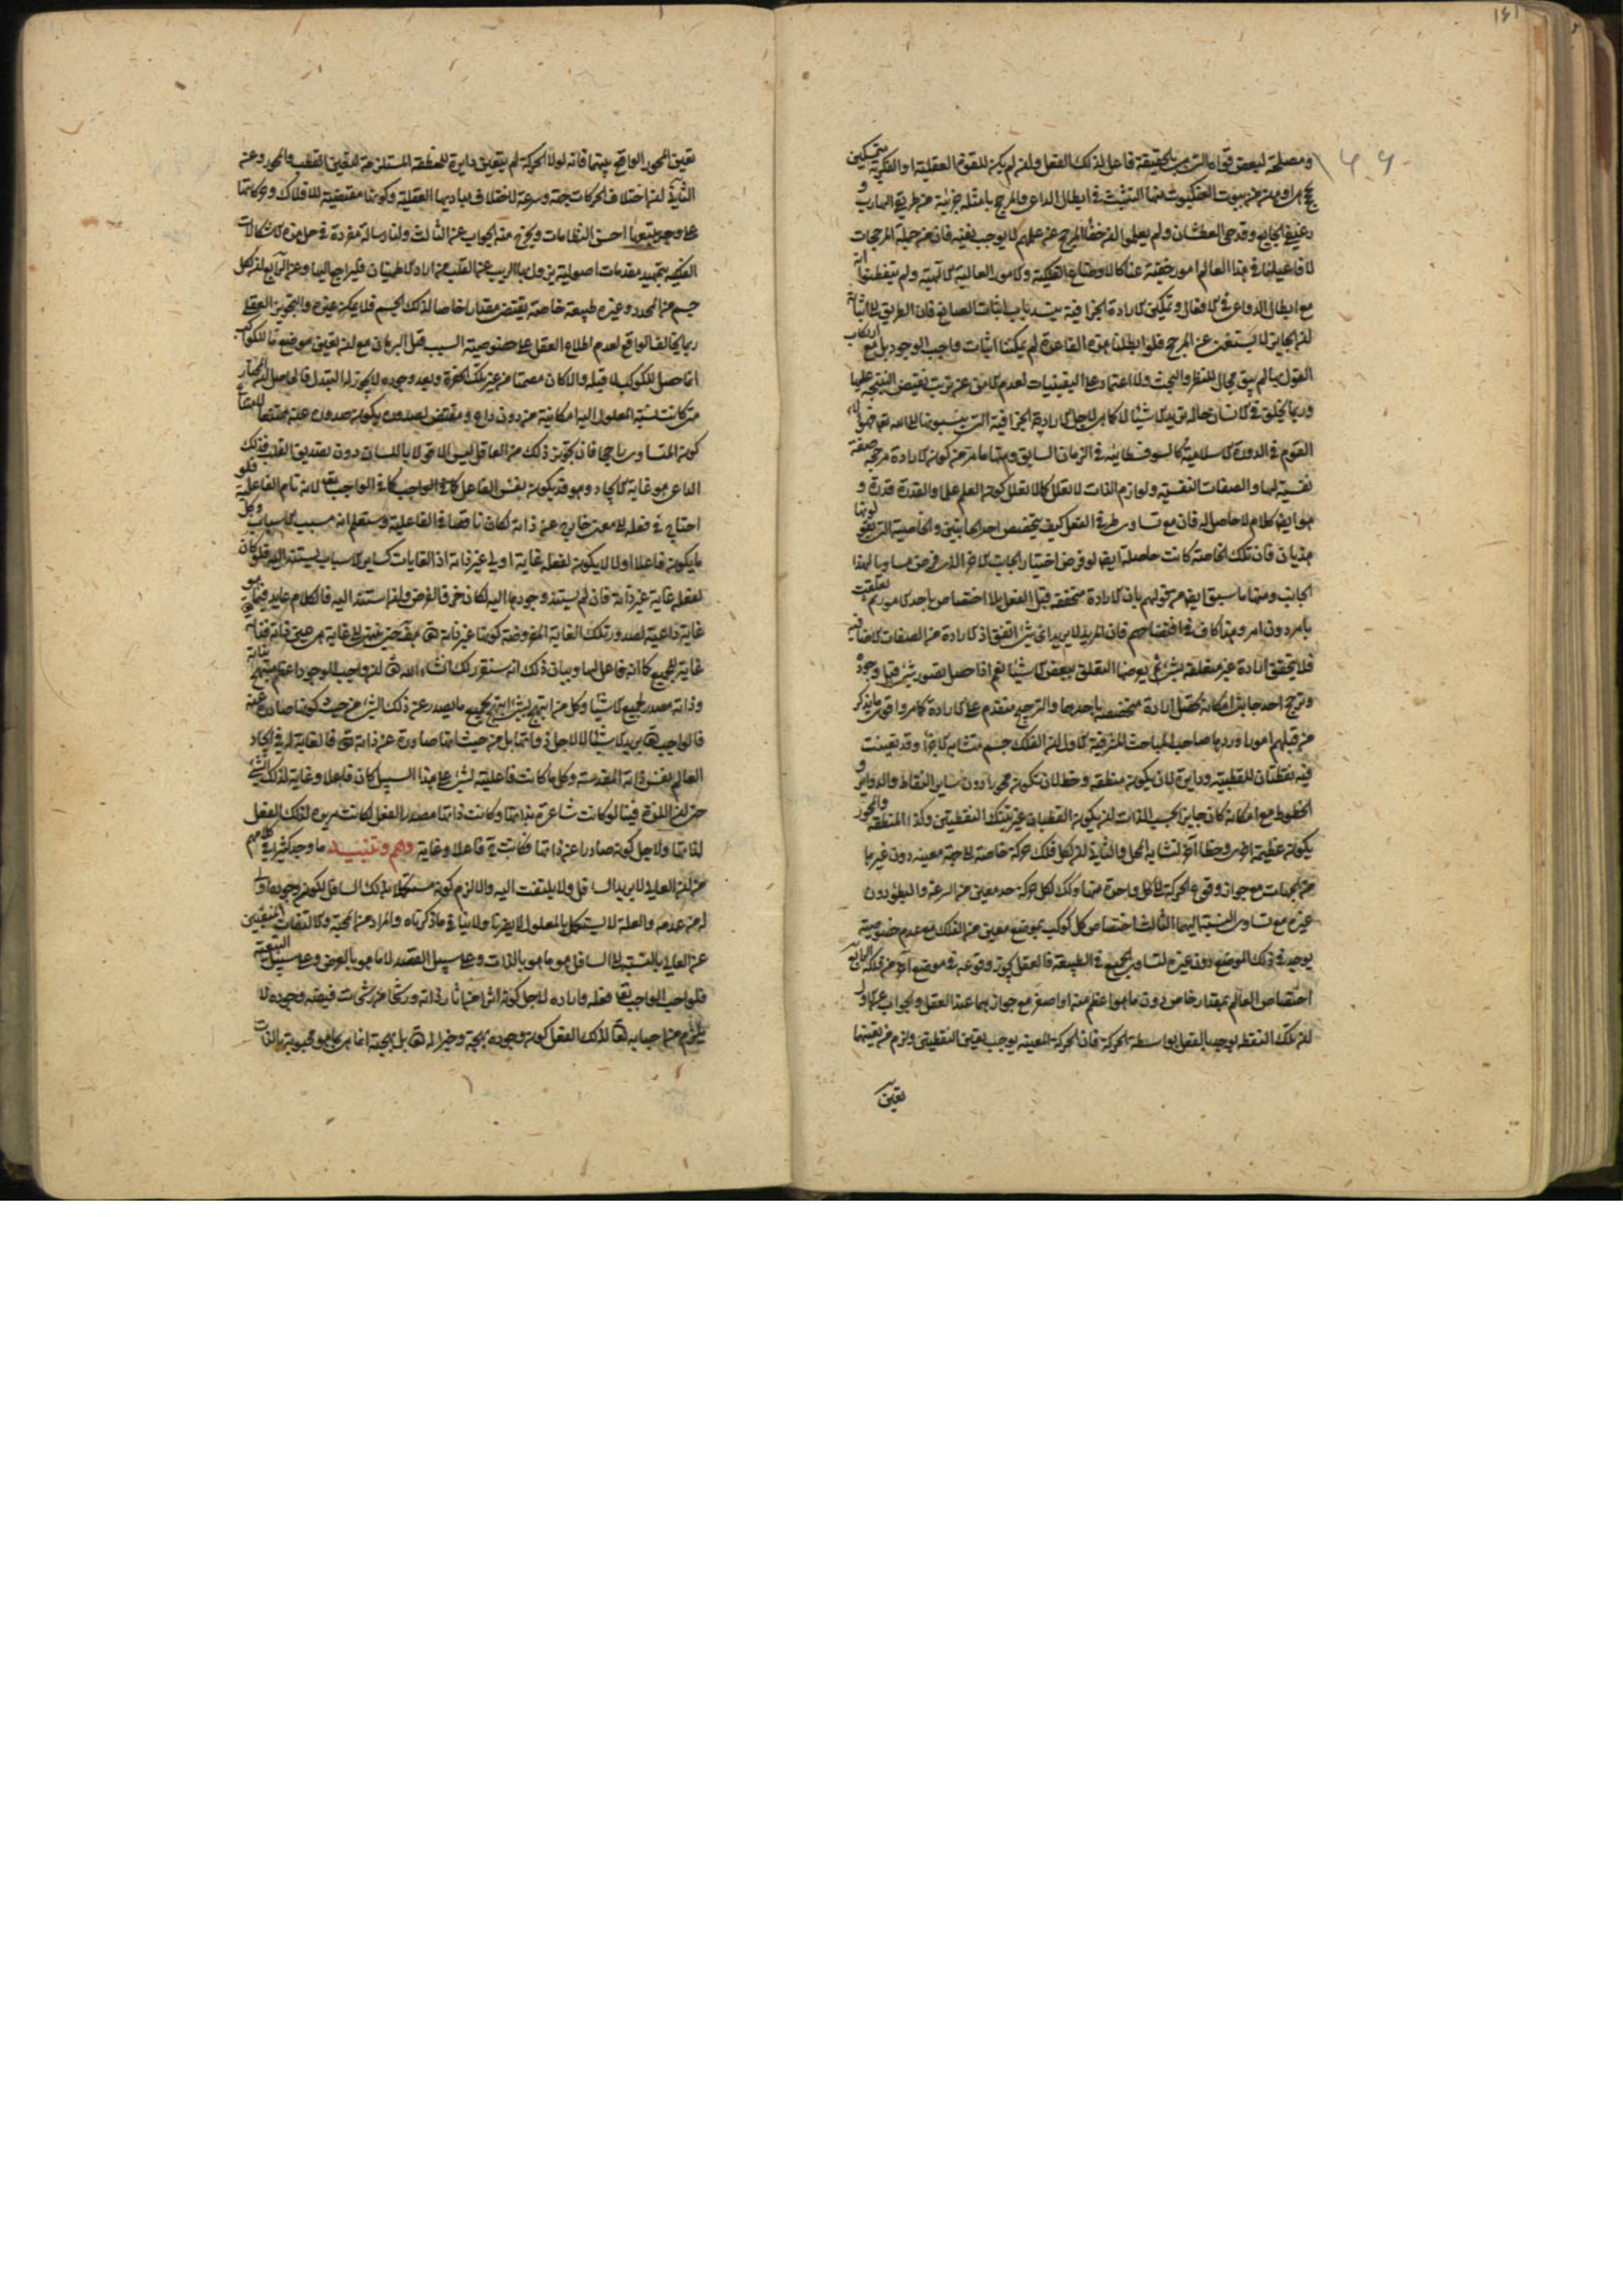 ومصلحة لبعض قواه التي هي بالحقيقة فاعل لذلك الفعل وان لم يكن للقوة العقلية او الفكرية يتمسكين
بحجج اوهن من بيوت العنكبوت منها التشبث في ابطال الداعي والمرجح بامثلة جزئية من طريقي الهارب و
رغيفي الجايع وقدحي العطشان ولم يعلموا ان خفاء المرجح عن علمهم لا يوجب نفيه فان من جملة المرجحات
لافاعيلنا في هذا العالم امور خفية عنا كالاوضاع الفلكية والامور العالية الالهية ولم يتفطنوا انه
مع ابطال الدواعي في الافعال وتمكين الارادة الجزافية ينسد باب اثبات الصانع فان الطريق الى اثباته
ان الجايز لا يستغني عن المرجح فلو ابطلنا هذه القاعدة لم يمكننا اثبات واجب الوجود بل مع ارتكاب
القول بها لم يبق مجال للنظر والبحث ولا اعتماد على اليقينيات لعدم الامن عن ترتب نقيض النتيجة عليها
وربما يخلق في الانسان حالة تريه الاشياء لا كما هي لاجل الارادة الجزافية التي ينسبونها الى الله تعالى فهؤلاء
القوم في الدورة الاسلامية كالسوفسطائية في الزمان السابق ومنها ما مر من كون الارادة مرجحة صفة
نفسية لها والصفات النفسية ولوازم الذات لا تعلل كما لا تعلل كون العلم علما والقدرة قدرة و
هو ايضا كلام لا حاصل له فان مع تساوي طرفي الفعل كيف يتخصص احد الجانبين والخاصية التي يقولونها
هذيان فان تلك الخاصة كانت حاصلة ايضا لو فرض اختيار الجانب الاخر الذي فرض مساويا لهذا
الجانب ومنها ما سبق ايضا من قولهم بان الارادة متحققة قبل الفعل بلا اختصاص باحد الامور ثم تعلقت
بامر دون امر وهذا كاف في افتضاحهم فان المريد لا يريد اي شيء اتفق اذ الارادة من الصفات الاضافية
فلا يتحقق ارادة غير متعلقة بشيء ثم يعرضها التعلق ببعض الاشياء نعم اذا حصل تصور شيء قبل وجوده
وترجح احد جانبي امكانه تحصل ارادة متخصصة باحدهما والترجيح متقدم على الارادة كما مر واقوى ما يذكر
من قبلهم امور اوردها صاحب المباحث المشرقية الاول ان الفلك جسم متشابه الاجزاء وقد تعينت
فيه نقطتان للقطبية ودايرة لان يكون منطقة وخط لان تكون محورا دون ساير النقاط والدواير و
الخطوط مع امكانه كان جايزا بحسب الذات ان يكون القطبان غير تينك النقطتين وكذا المنطقة والمحور
يكون عظيمة اخرى وخطا اخر لتشابه المحل والثاني ان لكل فلك حركة خاصة الى جهة معينة دون غيرها
من الجهات مع جواز وقوع الحركة الى كل واحدة منها وكذلك لكل حركة حد معين من السرعة والبطؤ دون
غيره مع تساوي النسبة اليهما الثالث اختصاص كل كوكب بموضع معين من الفلك مع عدم خصوصية
يوجبه في ذلك الموضع دون غيره لتساوي الجميع في الطبيعة فالعقل يجوز وقوعه في موضع اخر من فلكه الرابع
اختصاص العالم بمقدار خاص دون ما هو اعظم منه او اصغر مع جوازهما عند العقل والجواب عن الاول
ان تلك النقطة توجد بالفعل بواسطة الحركة فان الحركة المعينة يوجب تعين النقطتين ولزم من تعينهما
تعين
تعين المحور الواقع بينهما فانه لولا الحركة لم يتعين دايرة للمنطقة المستلزمة لتعين القطب والمحور وعن
الثاني ان اختلاف الحركات جهة وسرعة لاختلاف مباديها العقلية وكونها مقتضية للافلاك وحركاتها
على وجه يتبعها احسن النظامات ويخرج منه الجواب عن الثالث ولنا رسالة مفردة في حل هذه الاشكالات
الفلكية بتمهيد مقدمات اصولية يزول بها الريب عن القلب من اراد الاطمينان فليراجع اليها وعن الرابع ان لكل
جسم من المحدد وغيره طبيعة خاصة يقتضي مقدارا خاصا لذلك الجسم فلا يمكن غيره والتجويز العقلي
ربما يخالف الواقع لعدم اطلاع العقل على خصوصية السبب قبل البرهان مع ان تعين موضع ما للكوكب
انما حصل للكوكب لا قبله والا كان مصمتا من غير تلك الحفرة وبعد وجوده لا يجوز له التبدل فالحاصل ان المختار
متى كانت نسبة المعلول اليه امكانية من دون داع ومقتض لصدوره يكون صدوره عنه ممتنعا لامتناع
كون المتساوي راجحا فان تجويز ذلك من العاقل ليس الا قولا باللسان دون تصديق القلب فذلك
الداعي هو غاية الايجاد وهو قد يكون نفس الفاعل كما في الواجب تعالى لانه تام الفاعلية فلو
احتاج في فعله الى معنى خارج عن ذاته لكان ناقصا في الفاعلية وستعلم انه مسبب الاسباب وكل
ما يكون فاعلا اولا لا يكون لفعله غاية اولى غير ذاته اذ الغايات كساير الاسباب يستند اليه فلو كان
لفعله غاية غير ذاته فان لم يستند وجودها اليه لكان خرق الفرض وان استند اليه فالكلام عايد فيما هو
غاية داعية لصدور تلك الغاية المفروضة كونها غير ذاته تعالى حتى ينتهي الى غاية هي عين ذاته فذاته
غاية للجميع كما انه فاعل لها وبيان ذلك انه سنقرر لك انشاء الله تعالى ان واجب الوجود اعظم مبتهج بذاته
وذاته مصدر لجميع الاشياء وكل من ابتهج بشيء ابتهج بجميع ما يصدر عن ذلك الشيء من حيث كونها صادرة عنه
فالواجب تعالى يريد الاشياء لا لاجل ذواتها بل من حيث انها صادرة عن ذاته تعالى فالغاية له في ايجاد
العالم نفس ذاته المقدسة وكل ما كانت فاعليته لشيء على هذا السبيل كان فاعلا وغاية لذلك الشيء
حتى ان اللذة فينا لو كانت شاعرة بذاتها وكانت ذاتها مصدرا لفعل لكانت مريدة لذلك الفعل
لذاتها ولاجل كونه صادرا عن ذاتها فكانت ح فاعلا وغاية وهم وتنبيه ما وجد كثيرا في كلامهم
من ان العالي لا يريد السافل ولا يلتفت اليه والا لزم كونه مستكملا بذلك السافل لكون وجوده اولى
له من عدمه والعلة لا يستكمل بالمعلول لا يضرنا ولا ينافي ما ذكرناه والمراد من المحبة والالتفات المنفيين
عن العالي بالنسبة الى السافل هو ما هو بالذات وعلى سبيل القصد لا ما هو بالعرض وعلى سبيل التبعية
فلو احب الواجب تعالى فعله واراده لاجل كونه اثرا من اثار ذاته ورشحا من رشحات فيضه وجوده لا
يلزم من احبابه تعالى لذلك الفعل كون وجوده بهجة وخيرا له تعالى بل بهجته انما هي بما هو محبوبه بالذات
١٤١